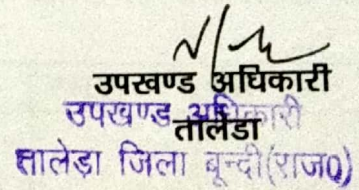 उपखण्ड अधिकारी
उपखण्ड अधिकारी
तालेडा
तालेड़ा जिला बून्दी(राज0)